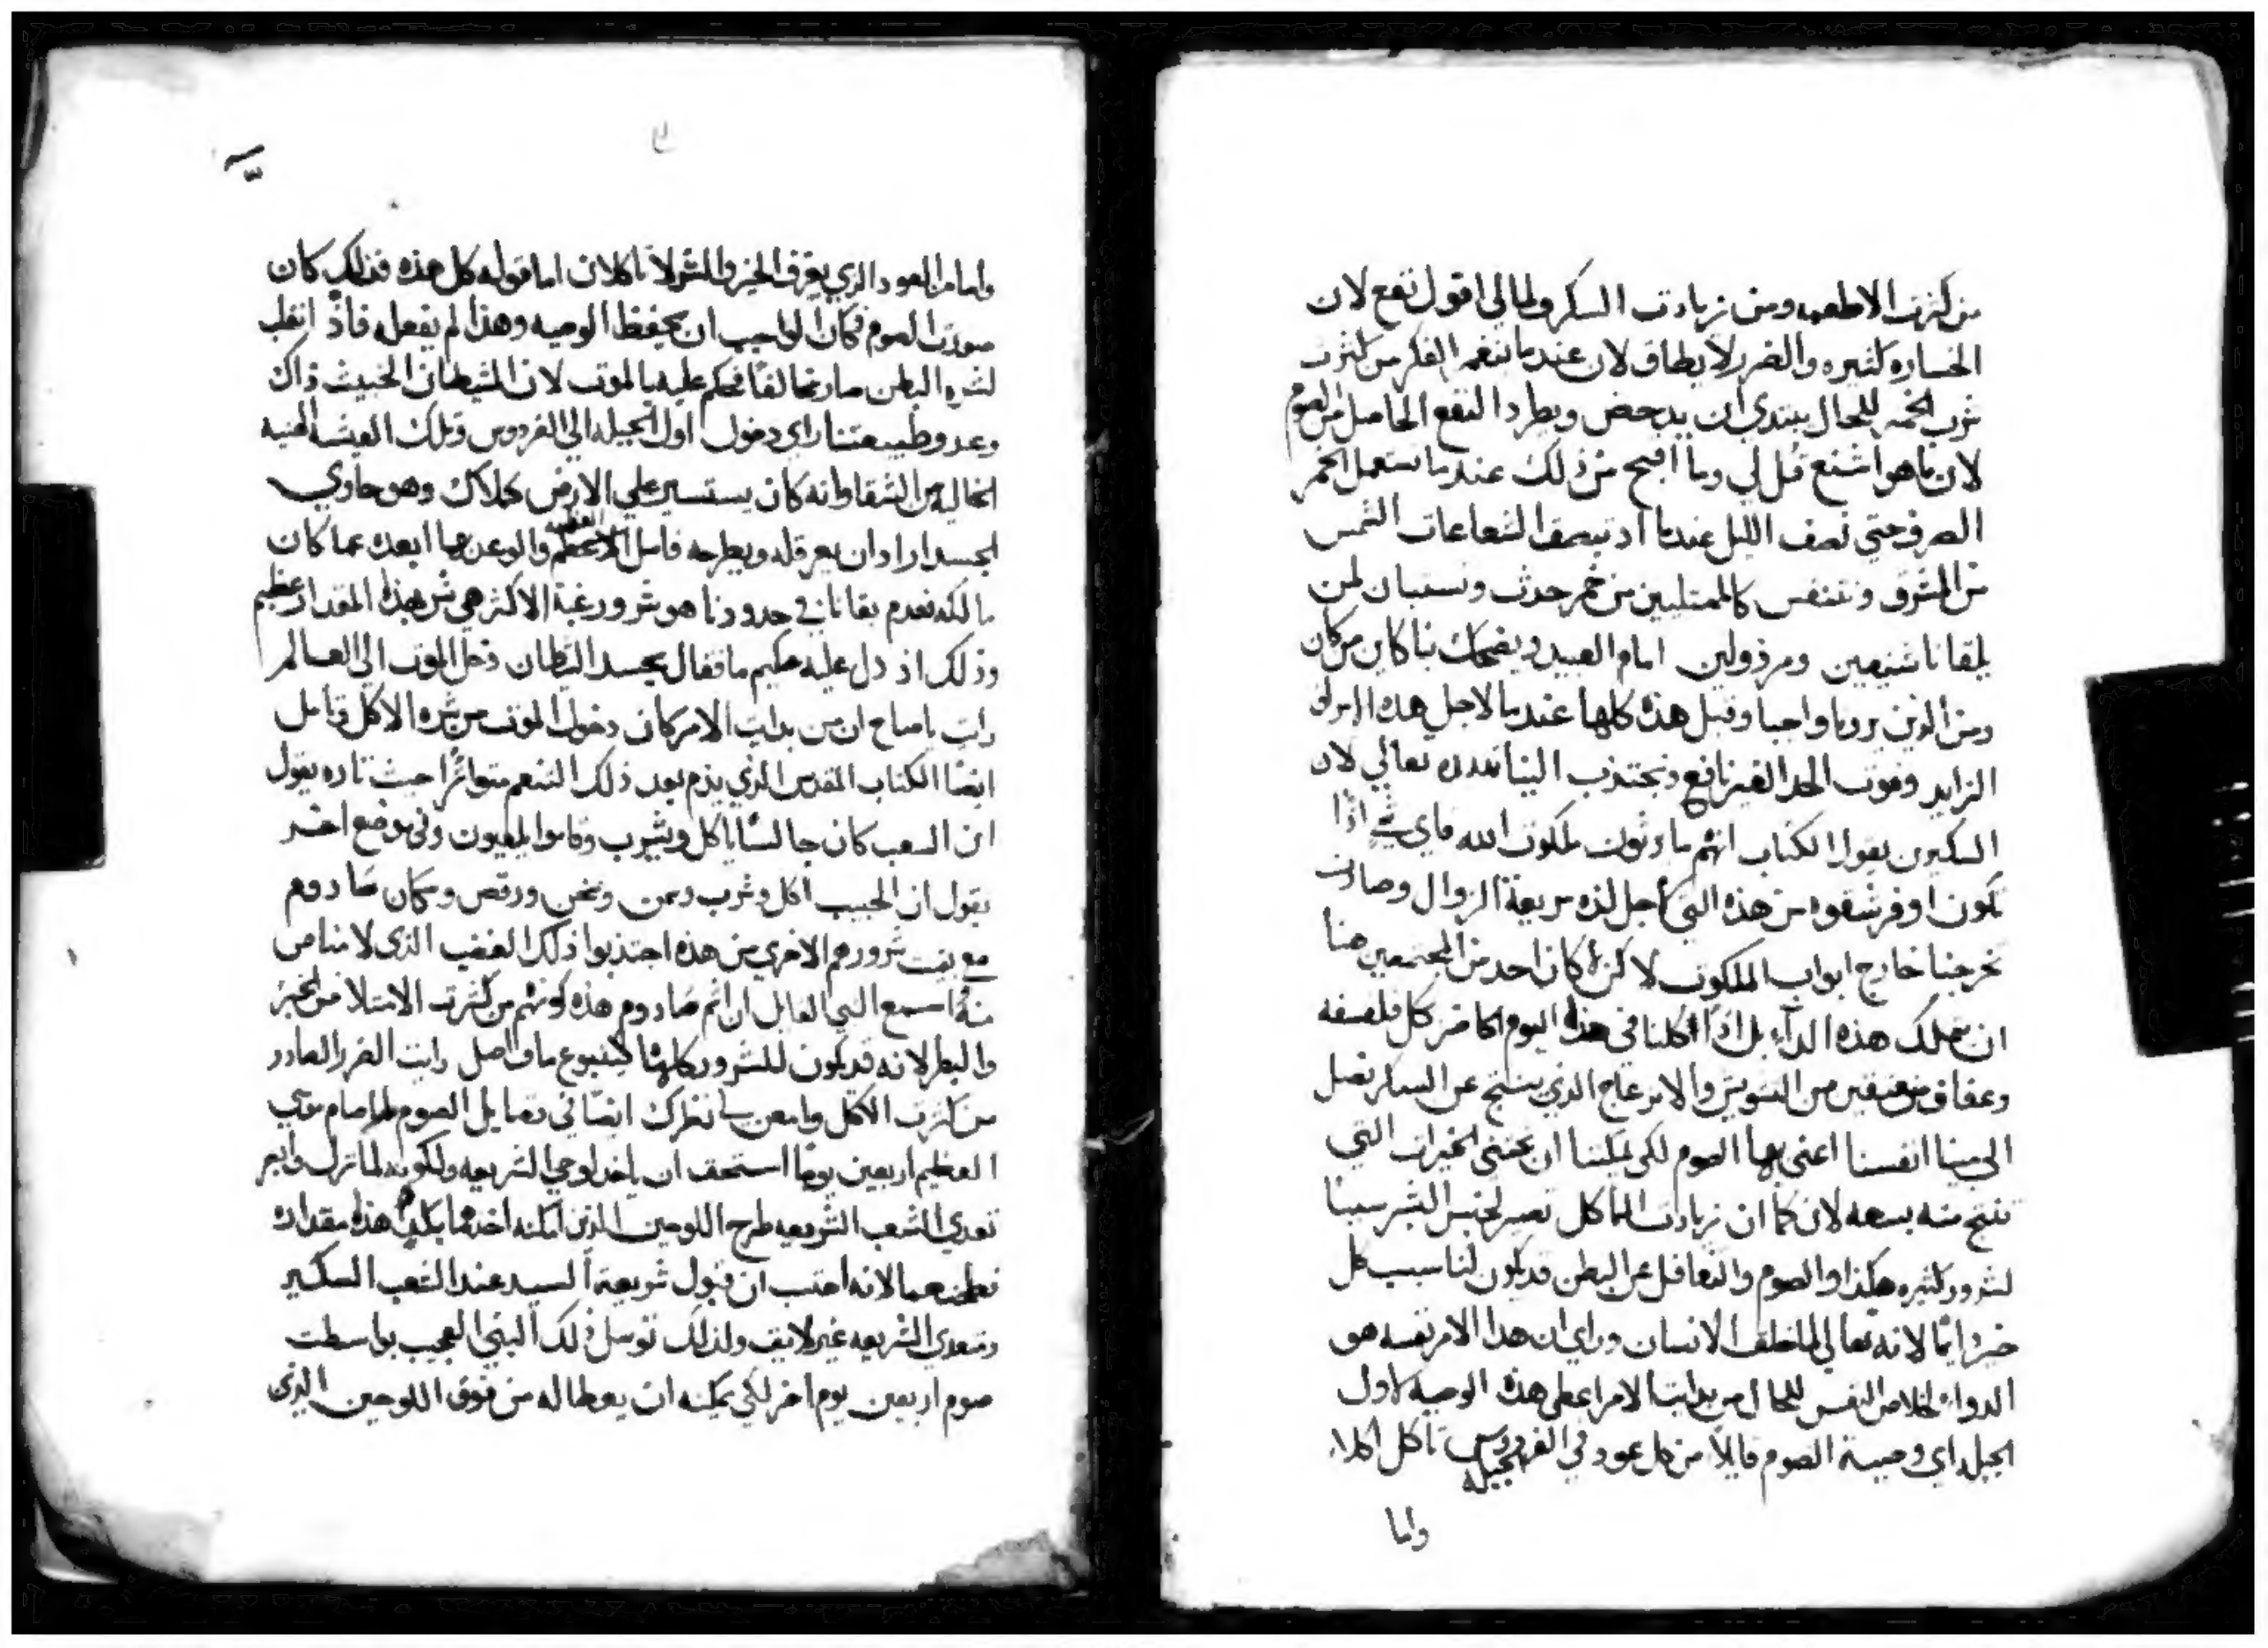 من كثرت الاطعمه ومن زيادت السكر ولمالي اقول نفع لان
الخساره كثيره والضرر لا يطاق لان عندما تنغمر الفكر من كثرت
شرب الخمر للحال يبتدي ان يدحض ويطرد النفع الحاصل من الصوم
لان ما هو اشنع قل لي وما اقبح من ذلك عندما نستعمل الخمر
الصرف حتي نصف الليل عندما اد الشعاعات الشمس
من المشرق ونتنفس كالممتليين من خمر حدث ونستبان لمن
يلقانا شنيعين ومرذولين امام العبيد ويضحك بنا كاين من كان
ومن الذين يروا واجبا وقبل هذه كلها عندما لاجل هذه
الزايد وفوت الحد الغير نافع ونجتذب الينا تعالي لان
السكيرين يقول الكتاب انهم ما يرثون ملكوت الله فاي شي اذا
تكون اوفر شقوه من هذه التي لاجل لذه سريعة الزوال وصارت
تخرجنا خارج ابواب الملكوت لا كن لا كان احد من المجتمعين هنا
ان يملك هذه الداء بل اذا اكلنا في هذا اليوم الحاضر كل فلسفه
وعفاف منعتقين من التشويش والازعاج الذي ينتج عن السكر نصل
الي مينا انفسنا اعني بها الصوم لكي يمكننا ان نجتني الخيرات التي
تنتج منه بسعه لان كما ان زيادت الماكل تصير لجنس البشر سببا
لشرور كثيره هكذا والصوم والتغافل عن البطن قد يكون لنا سبب كل
خير دايما لانه تعالي لما خلق الانسان وراي ان هذا الامر نفسه هو
الدواء لخلاص النفس للحال من بدايت الامر اعطي هذه الوصيه لاول
الجبله اي وصية الصوم قايلا من كل عود في الفردوس تاكل اكلا
الجبله
واما
واما من العود الذي يعرف الخير والشر لا تاكلان اما قوله كل هذه فذلك كان
صورت الصوم فكان الواجب ان يحفظ الوصيه وهذا لم يفعله فاذ انغلب
لشره البطن صار مخالفا فحكم عليه بالموت لان الشيطان الخبيث ذاك
وعدو طبيعتنا راي دخول اول الجبيله الي الفردوس وتلك العيشه الهنيه
الخاليه من الشقا وانه كان يستسير علي الارض كملاك وهو حاوي
لجسد اراد ان يعرقله ويطرحه فامل العظيمه والوعد بها ابعده عما كان
مالكه نعدم بقانا في حدودنا هو شر ورغبة الاكثر هي شر بهذا المقدار عظيم
وذلك اذ دل عليه حكيم ما فقال بحسد الشيطان دخل الموت الي العالم
رايت يا صاح ان من بدايت الامر كان دخول الموت من شره الاكل وتامل
ايضا الكتاب المقدس الذي يذم بعد ذلك التنعم متواترا حيث تاره يقول
ان الشعب كان جالسا ياكل ويشرب وقاموا يلعبون وفي موضع اخر
يقول ان الحبيب اكل وشرب وسمن وتخن ورقص وسكان صادوم
مع بقيت شرورهم الاخري من هذه اجتذبوا ذلك الغضب الذي لا مناص
منه اسمع النبي القايل ان اثم صادوم هذه كونهم من كثرت الامتلا من الخبز
والبطر لانه قد يكون للشرور كلها كينبوع ما واصل رايت الضرر الصادر
من كثرت الاكل وامعن نظرك ايضا في فضايل الصوم لما صام موسي
العظيم اربعين يوما استحق ان ياخد لوحي الشريعه ولكونه لما نزل وابصر
تعدي الشعب الشريعه طرح اللوحين الذين امكنه اخذهما بكل هذا مقداره
فطحنهما لانه احتسب ان قبول شريعة السيد عند الشعب السكير
ومتعدي الشريعه غير لايق ولذلك توسل ذلك النبي العجيب بواسطت
صوم اربعين يوم اخر لكي يمكنه ان يعطا له من فوق اللوحين الذي